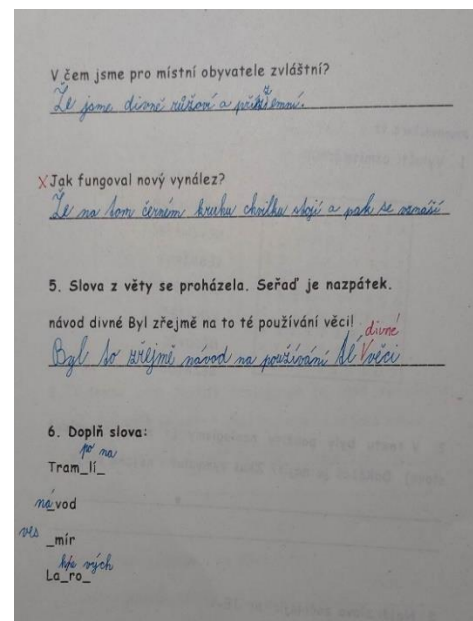 V čem jsme pro místní obyvatele zvláštní?
Že jsme divné růžoví a přízemní.
X Jak fungoval nový vynález?
Že na tom černém kruhu chvilku stojí a pak se vznáší
5. Slova z věty se proházela. Seřaď je nazpátek.
návod divné Byl zřejmě na to té používání věci!
divné
Byl to zřejmě návod na používání té V věci
6. Doplň slova:
po na
Tram_lí_
ná vod
ves _mír
vých
La_ro_